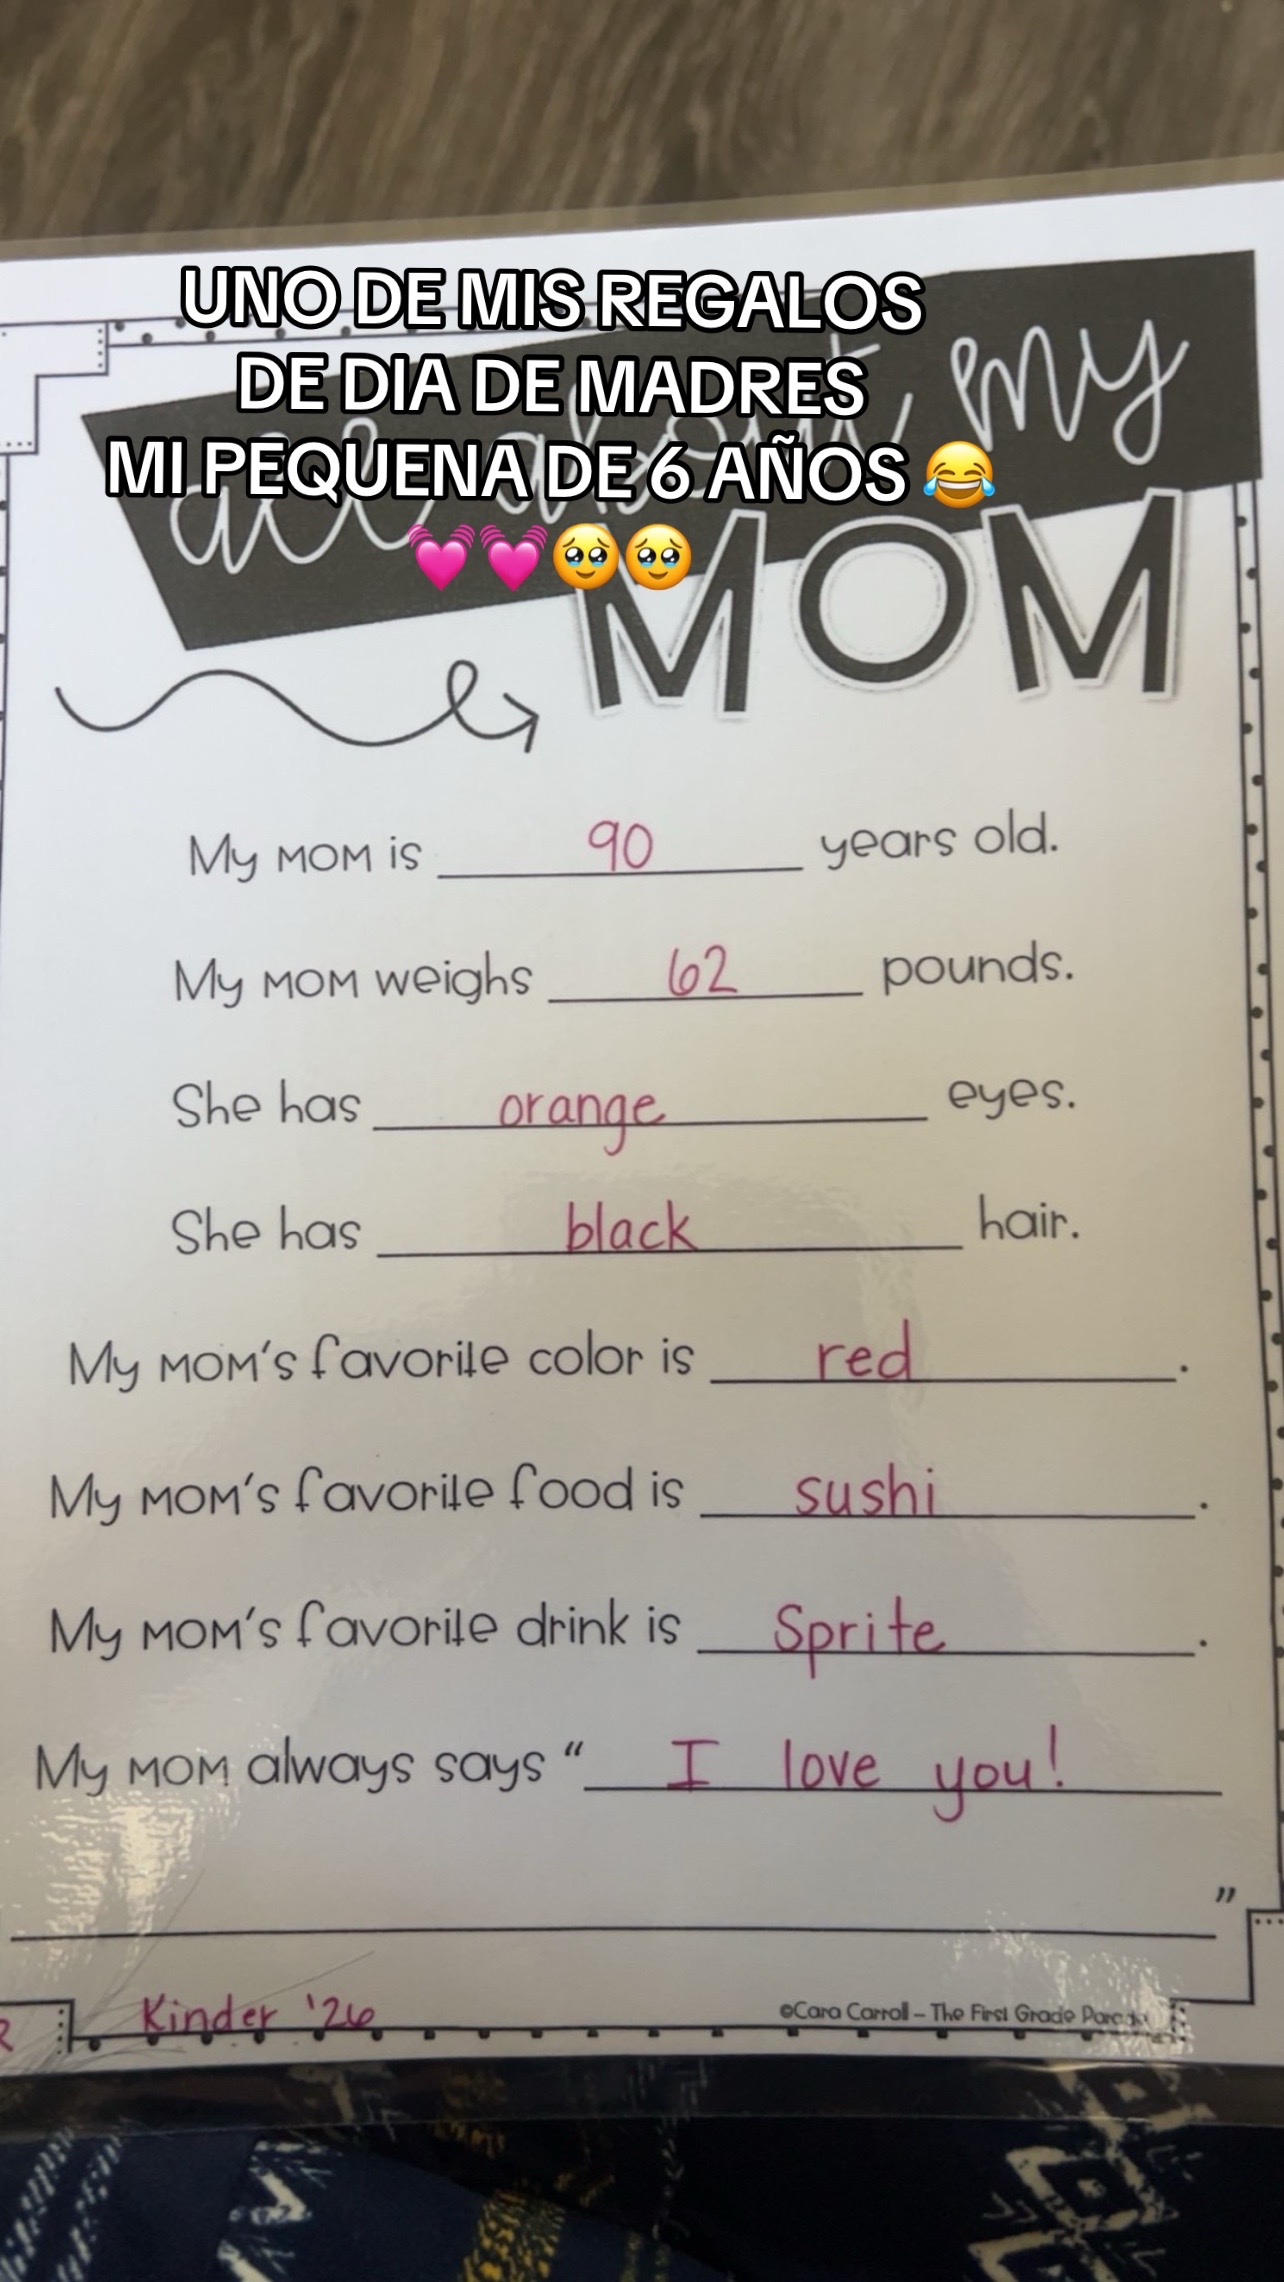 UNO DE MIS REGALOS
DE DIA DE MADRES
MI PEQUENA DE 6 AÑOS 😂
💓💓🥹🥹
all about my
MOM
My MOM is 90 years old.
My MOM weighs 62 pounds.
She has orange eyes.
She has black hair.
My MOM's favorite color is red.
My MOM's favorite food is sushi.
My MOM's favorite drink is Sprite.
My MOM always says "I love you!
"
Kinder '26
©Cara Carroll - The First Grade Parade